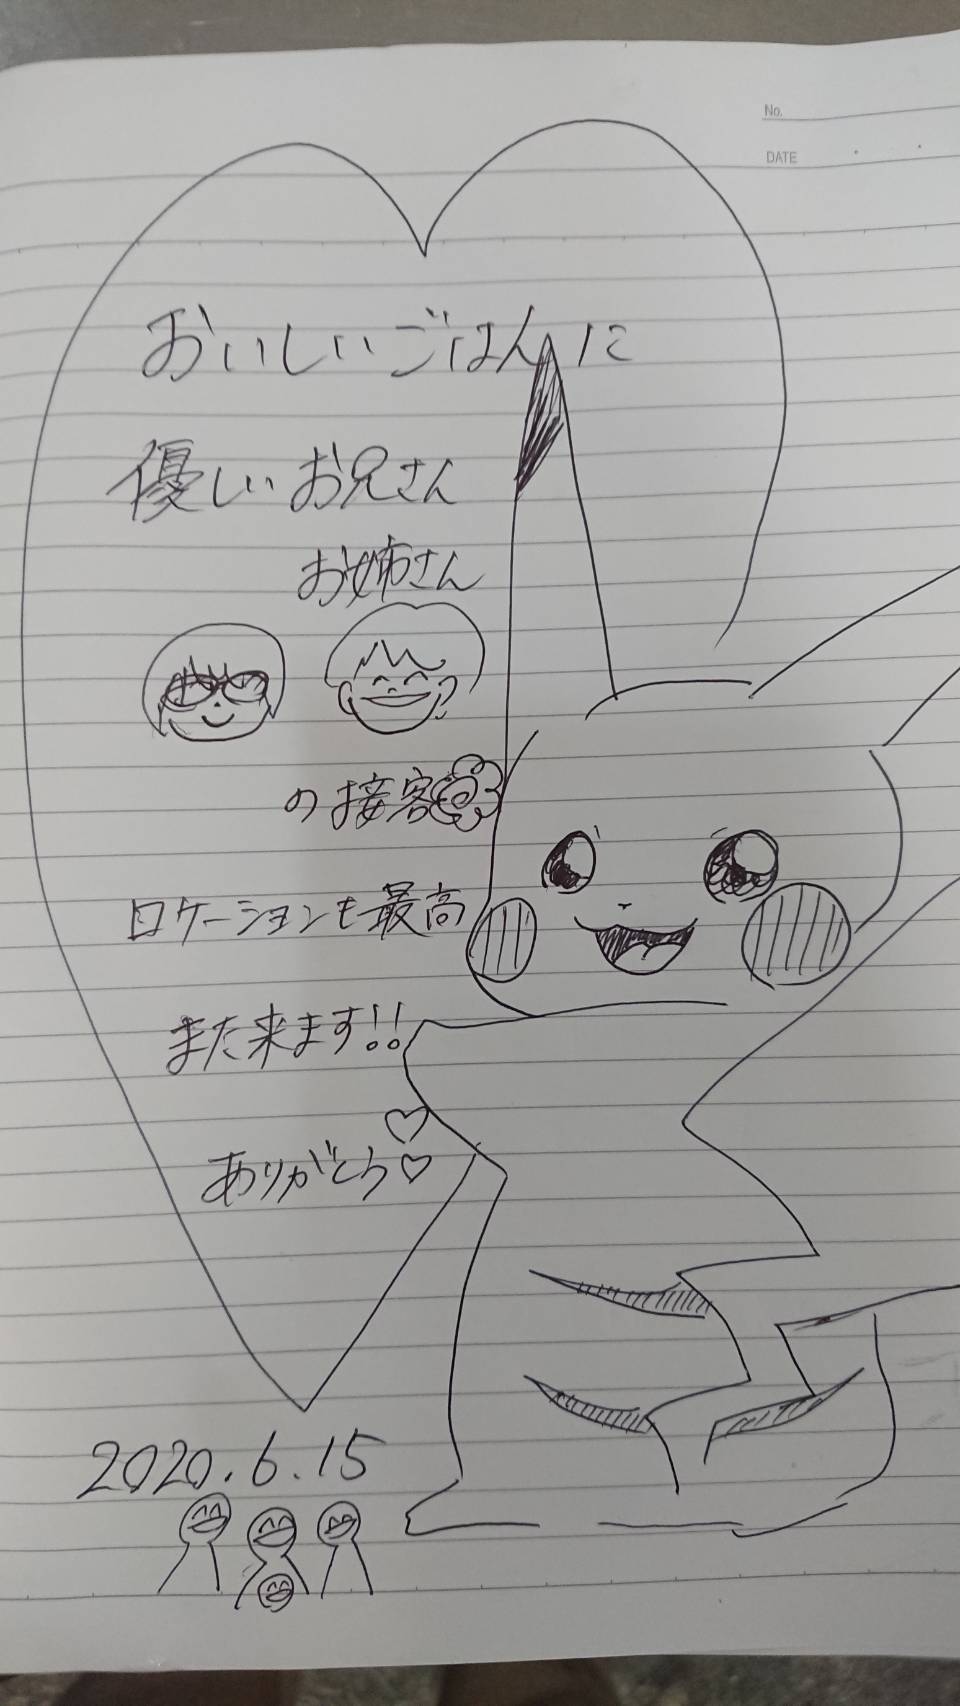 No.
DATE
おいしいごはんに
優しいお兄さん
お姉さん
の接客
ロケーションも最高
また来ます!!
ありがとう♡
2020.6.15